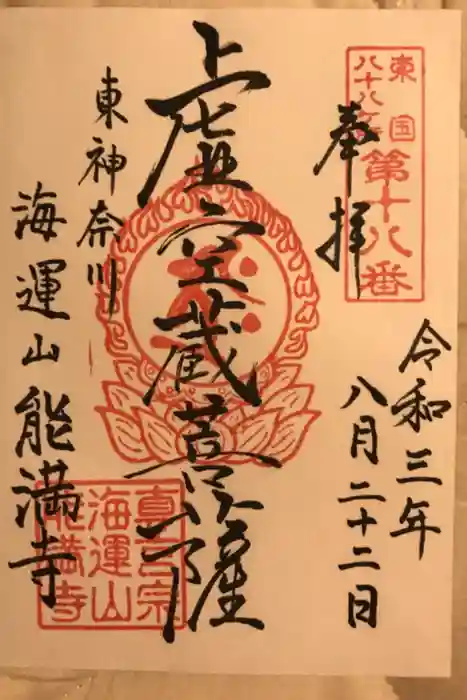 東国
八十八ヶ所
第十八番
奉拝
令和三年
八月二十二日
虚空蔵菩薩
東神奈川
海運山能満寺
真言宗
海運山
能満寺